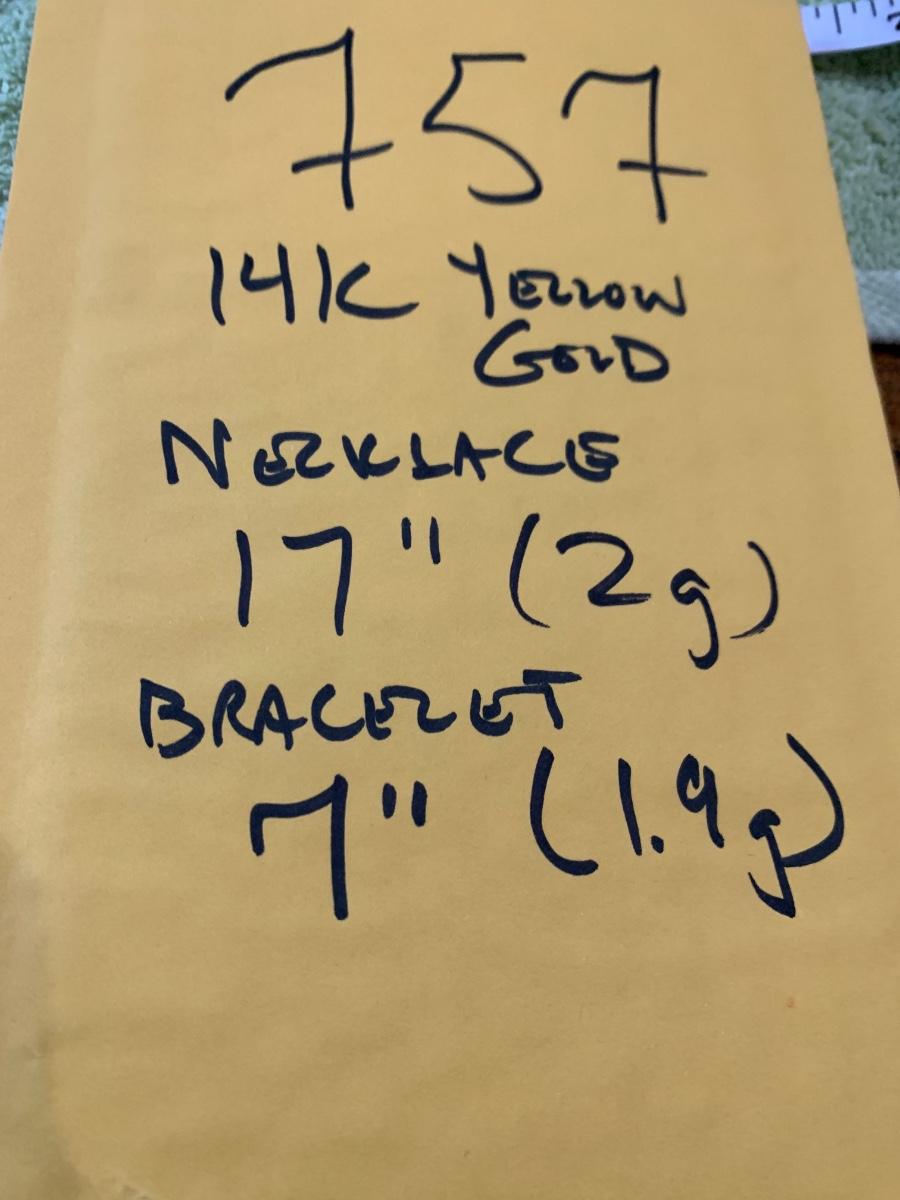 757
14K YELLOW
GOLD
NECKLACE
17" (2g)
BRACELET
7" (1.9g)